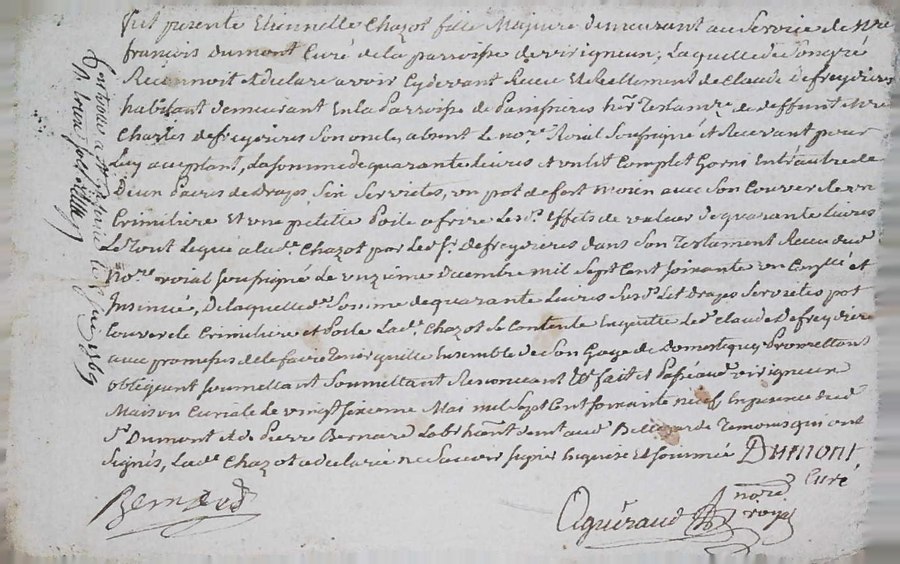 fut presente Etiennette Chazot fille Majeure demeurant au Service de Mre
françois Dumont Curé de la parroisse de virigneux, Laquelle de Son gré
Reconnoit et declare avoir Cydevant Receu Et Reellement de Claude defreydiere
habitant demeurant En la Parroisse de hér Testamre de deffunt
Charles defreydieres Son oncle, absent le nore Roial Soussigné et Recevant pour
Luy acceptant, La somme de quarante Livres et un lit Complet Garni Entr'autre de
D'un paires de Draps, Six Serviettes, un pot de fert avec Son Couvercle un
Crimiliere Et une petite Poile a frire Lesds Effets de valeur de quarante Livres
Le Tout Legué a lade Chazot par Led Sr defreydieres dans Son Testament Receu dud
nore roial Soussigné le onzieme Decembre mil Sept Cent Soixante un et
Insinué, De laquelle de Somme de quarante Livres Susd Lit draps Serviettes pot
Couvercle Crimiliere et Poile Lade Chazot Se Contente En quitte Led Claude Defreydiere
avec promesse de le faire Tenir quitte Ensemble de Son Gage de Domestique Promettant
obligeant Soumettant Renonceant fait et Passé aud virigneux
Maison Curiale le vingt Sixieme Mai mil Sept Cent Soixante neuf En presence dud
Sr Dumont et de Pierre Bernard habitant aud Bellegarde Temoins qui ont
Signés, Lade Chazot a declaré ne Scavoir Signer Enquise Et Sommée Dumont
Curé
Bernard
Aguiraud nore
royal
1769